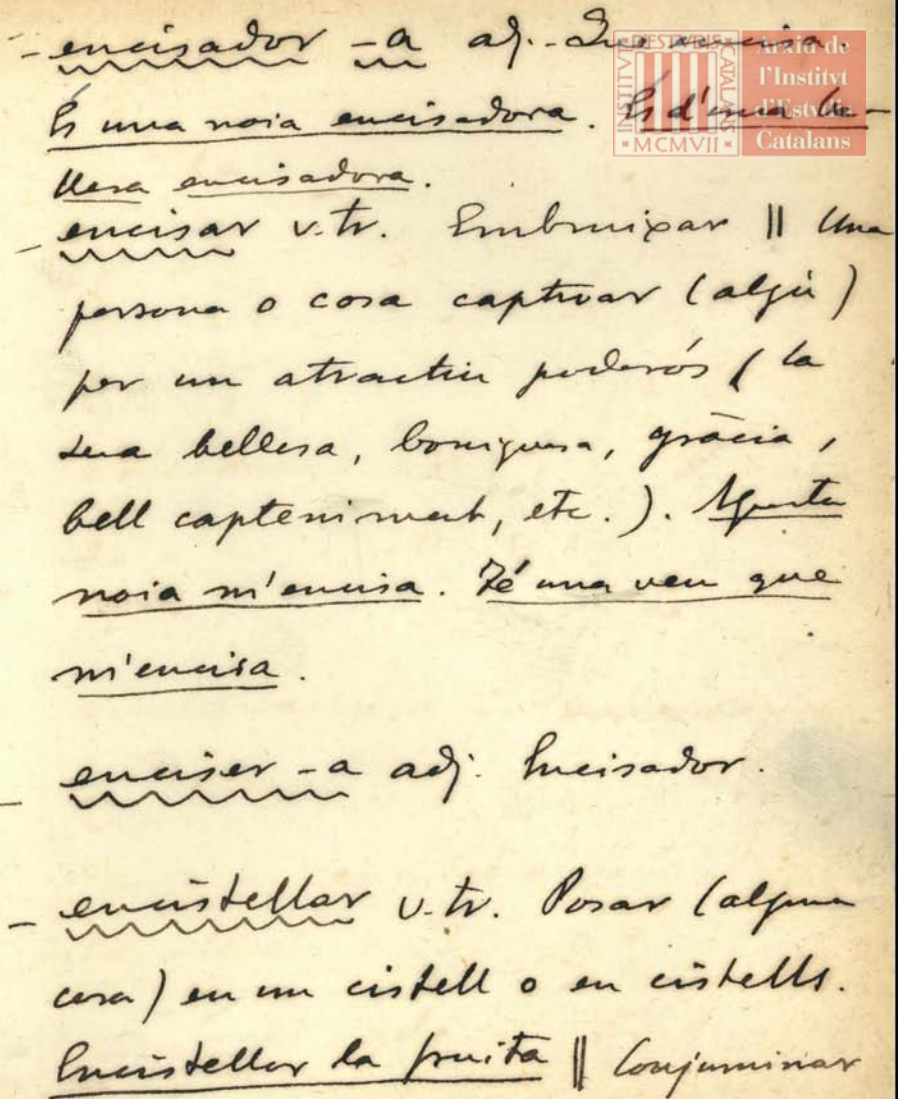 - encisador -a adj. - Que encisa.
És una noia encisadora. És d'una be-
llesa encisadora.
- encisar v. tr. Embruixar || Una
persona o cosa captivar (algú)
per un atractiu poderós (la
seva bellesa, boniquesa, gràcia,
bell capteniment, etc.). Aquesta
noia m'encisa. Té una veu que
m'encisa.
- enciser -a adj. Encisador.
- encistellar v. tr. Posar (alguna
cosa) en un cistell o en cistells.
Encistellar la fruita || Conjuminar
INSTITVT D'ESTVDIS CATALANS
MCMVII
Arxiu de
l'Institvt
d'Estvdis
Catalans